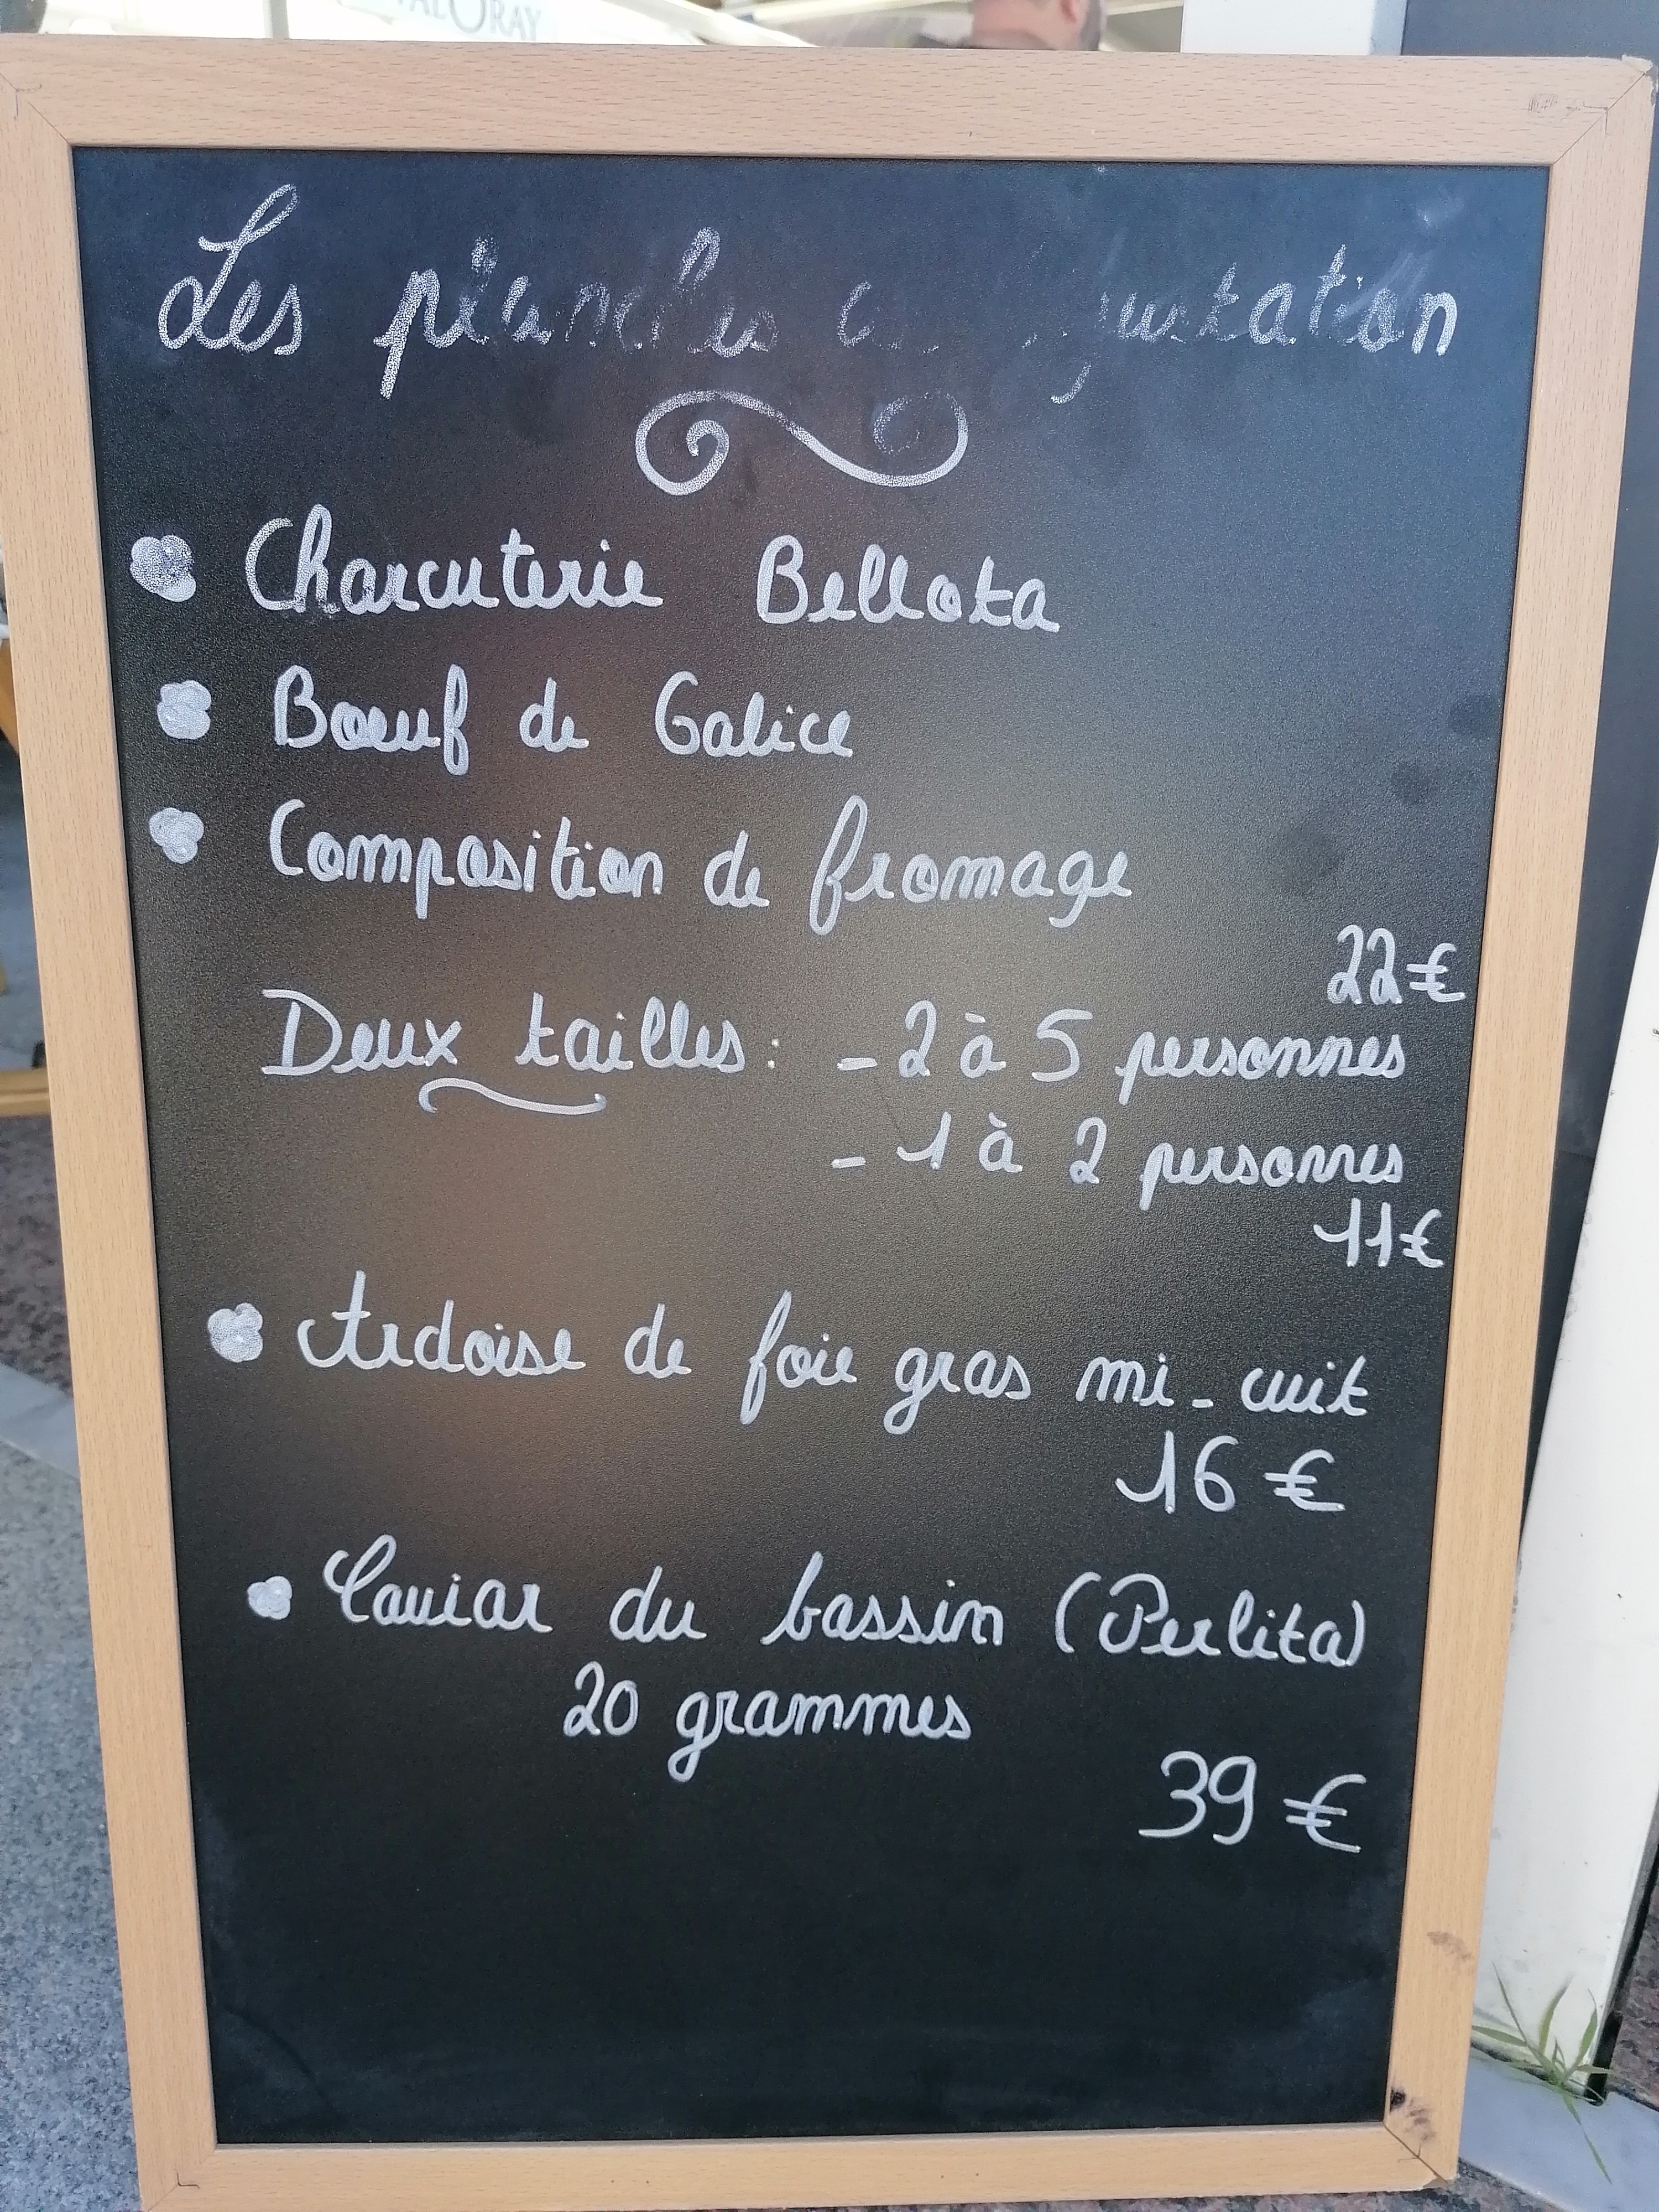 Les planches
Charcuterie Bellota
Bœuf de Galice
Composition de fromage
22€
Deux tailles : - 2 à 5 personnes
- 1 à 2 personnes
11€
Ardoise de foie gras mi-cuit
16 €
Caviar du bassin (Perlita)
20 grammes
39 €